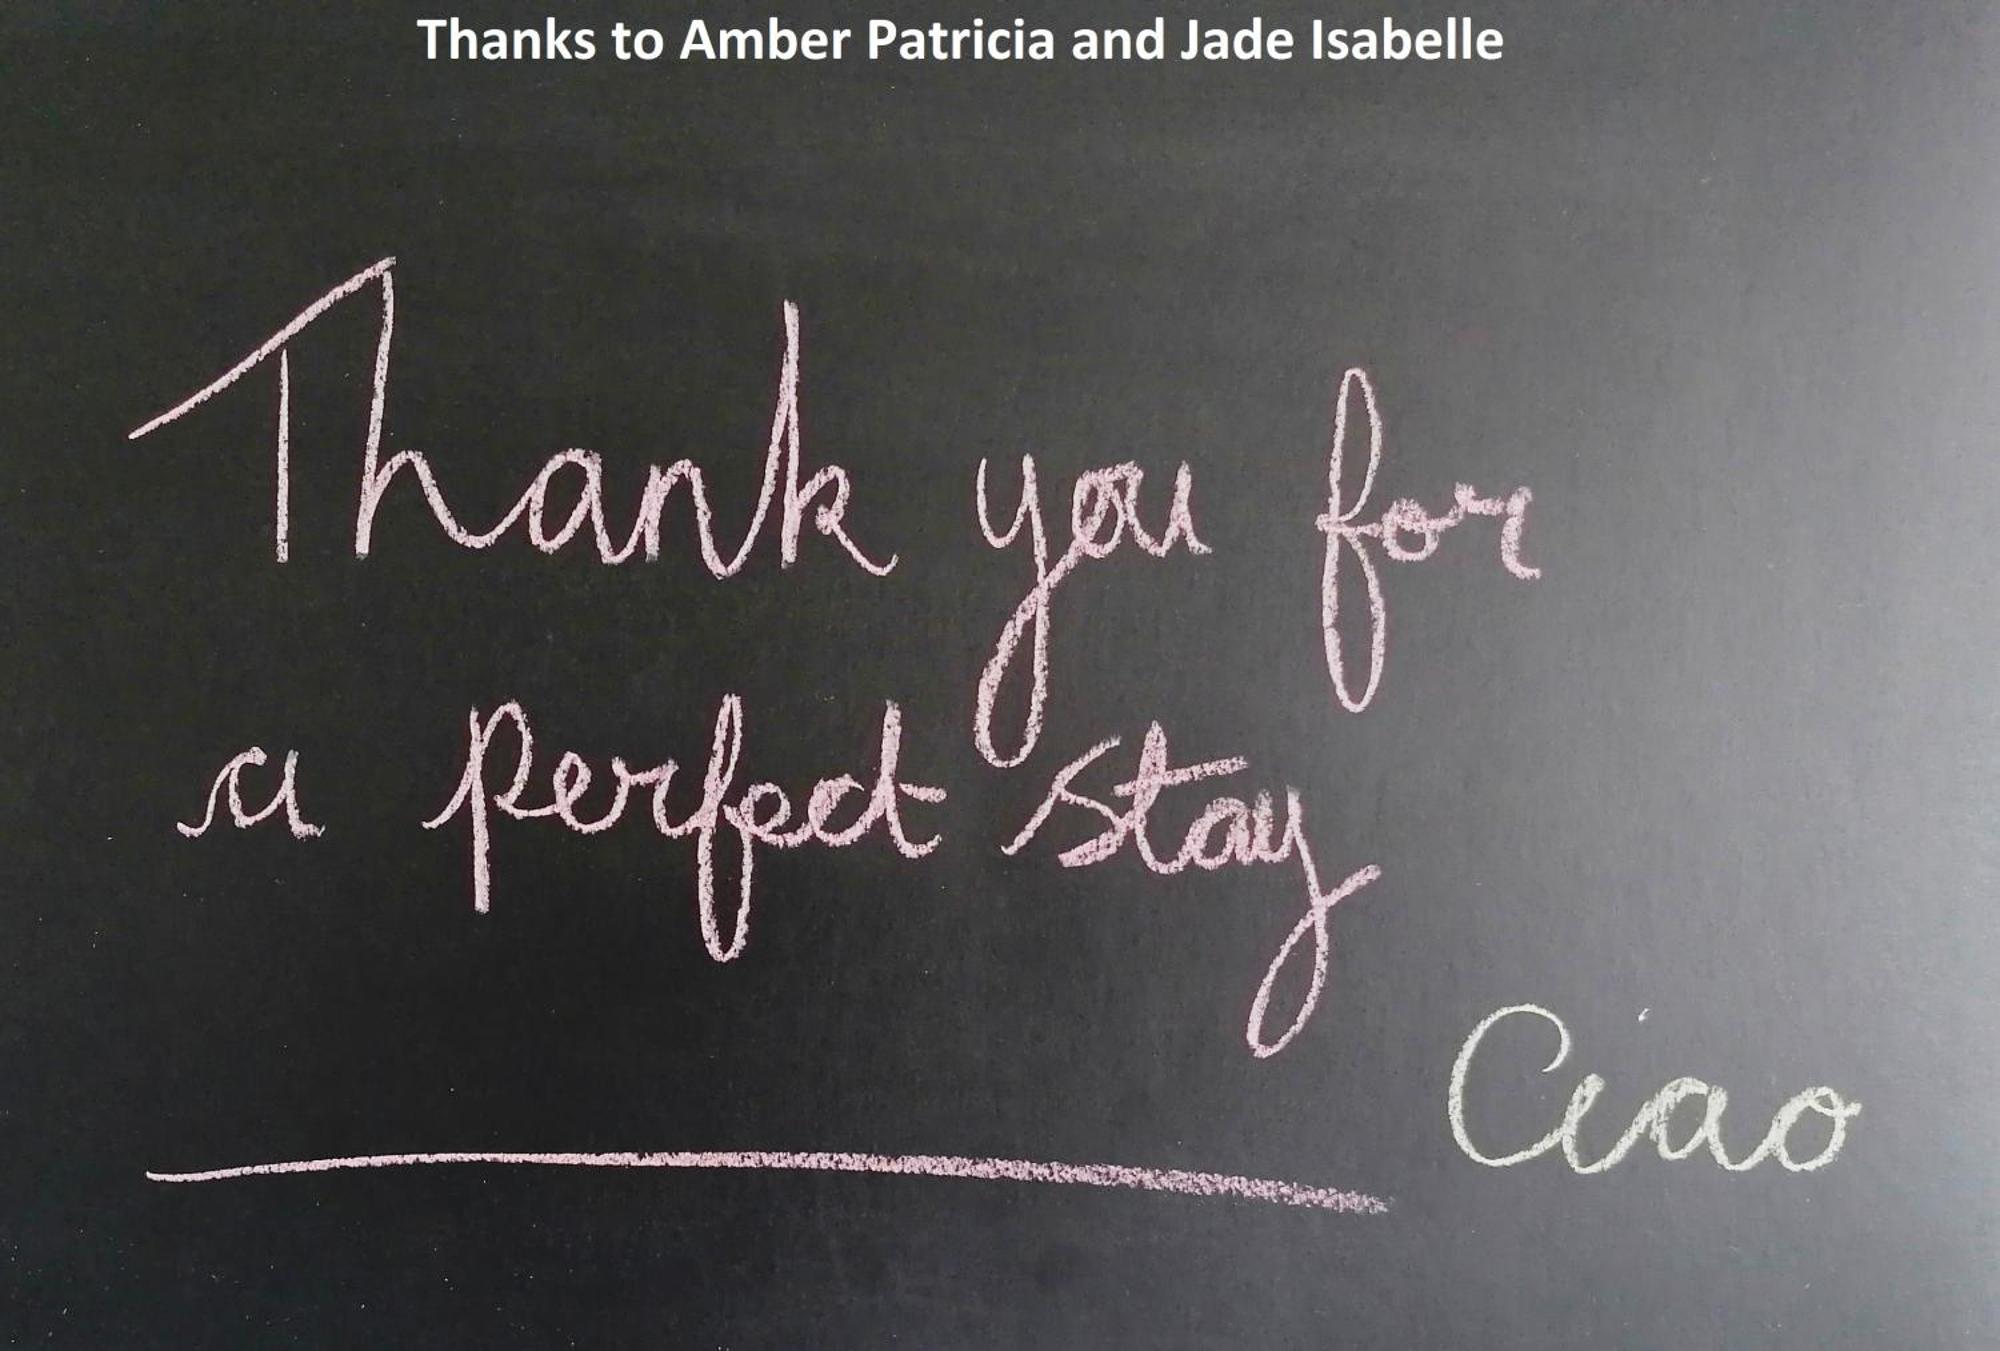 Thanks to Amber Patricia and Jade Isabelle
Thank you for
a perfect stay
Ciao